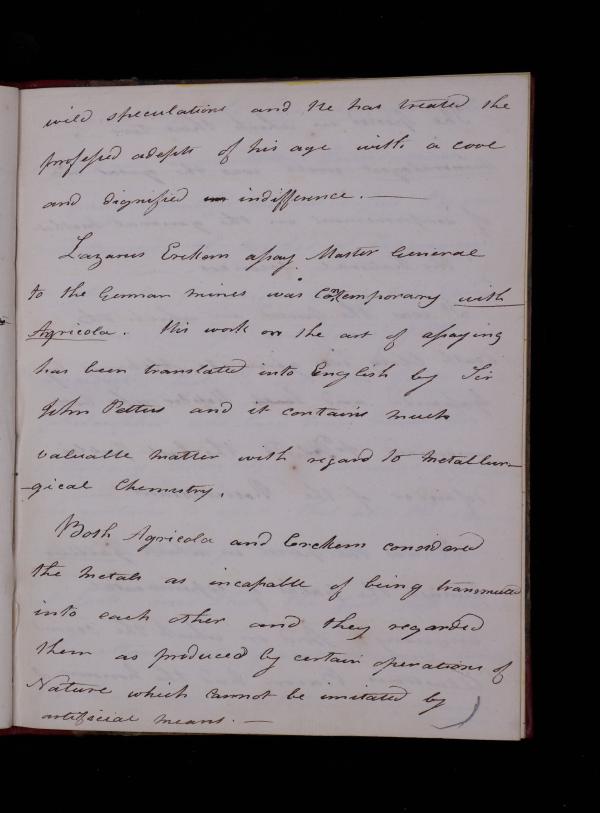 wild speculations and he has treated the
professed adepts of his age with a cool
and dignified indifference. —
Lazarus Erckern assay Master General
to the German mines was contemporary with
Agricola. His work on the art of assaying
has been translated into English by Sir
John Pettus and it contains much
valuable matter with regard to metallur-
-gical Chemistry.
Both Agricola and Erckern considered
the metals as incapable of being transmuted
into each other and they regarded
them as produced by certain operations of
Nature which cannot be imitated by
artificial means. —